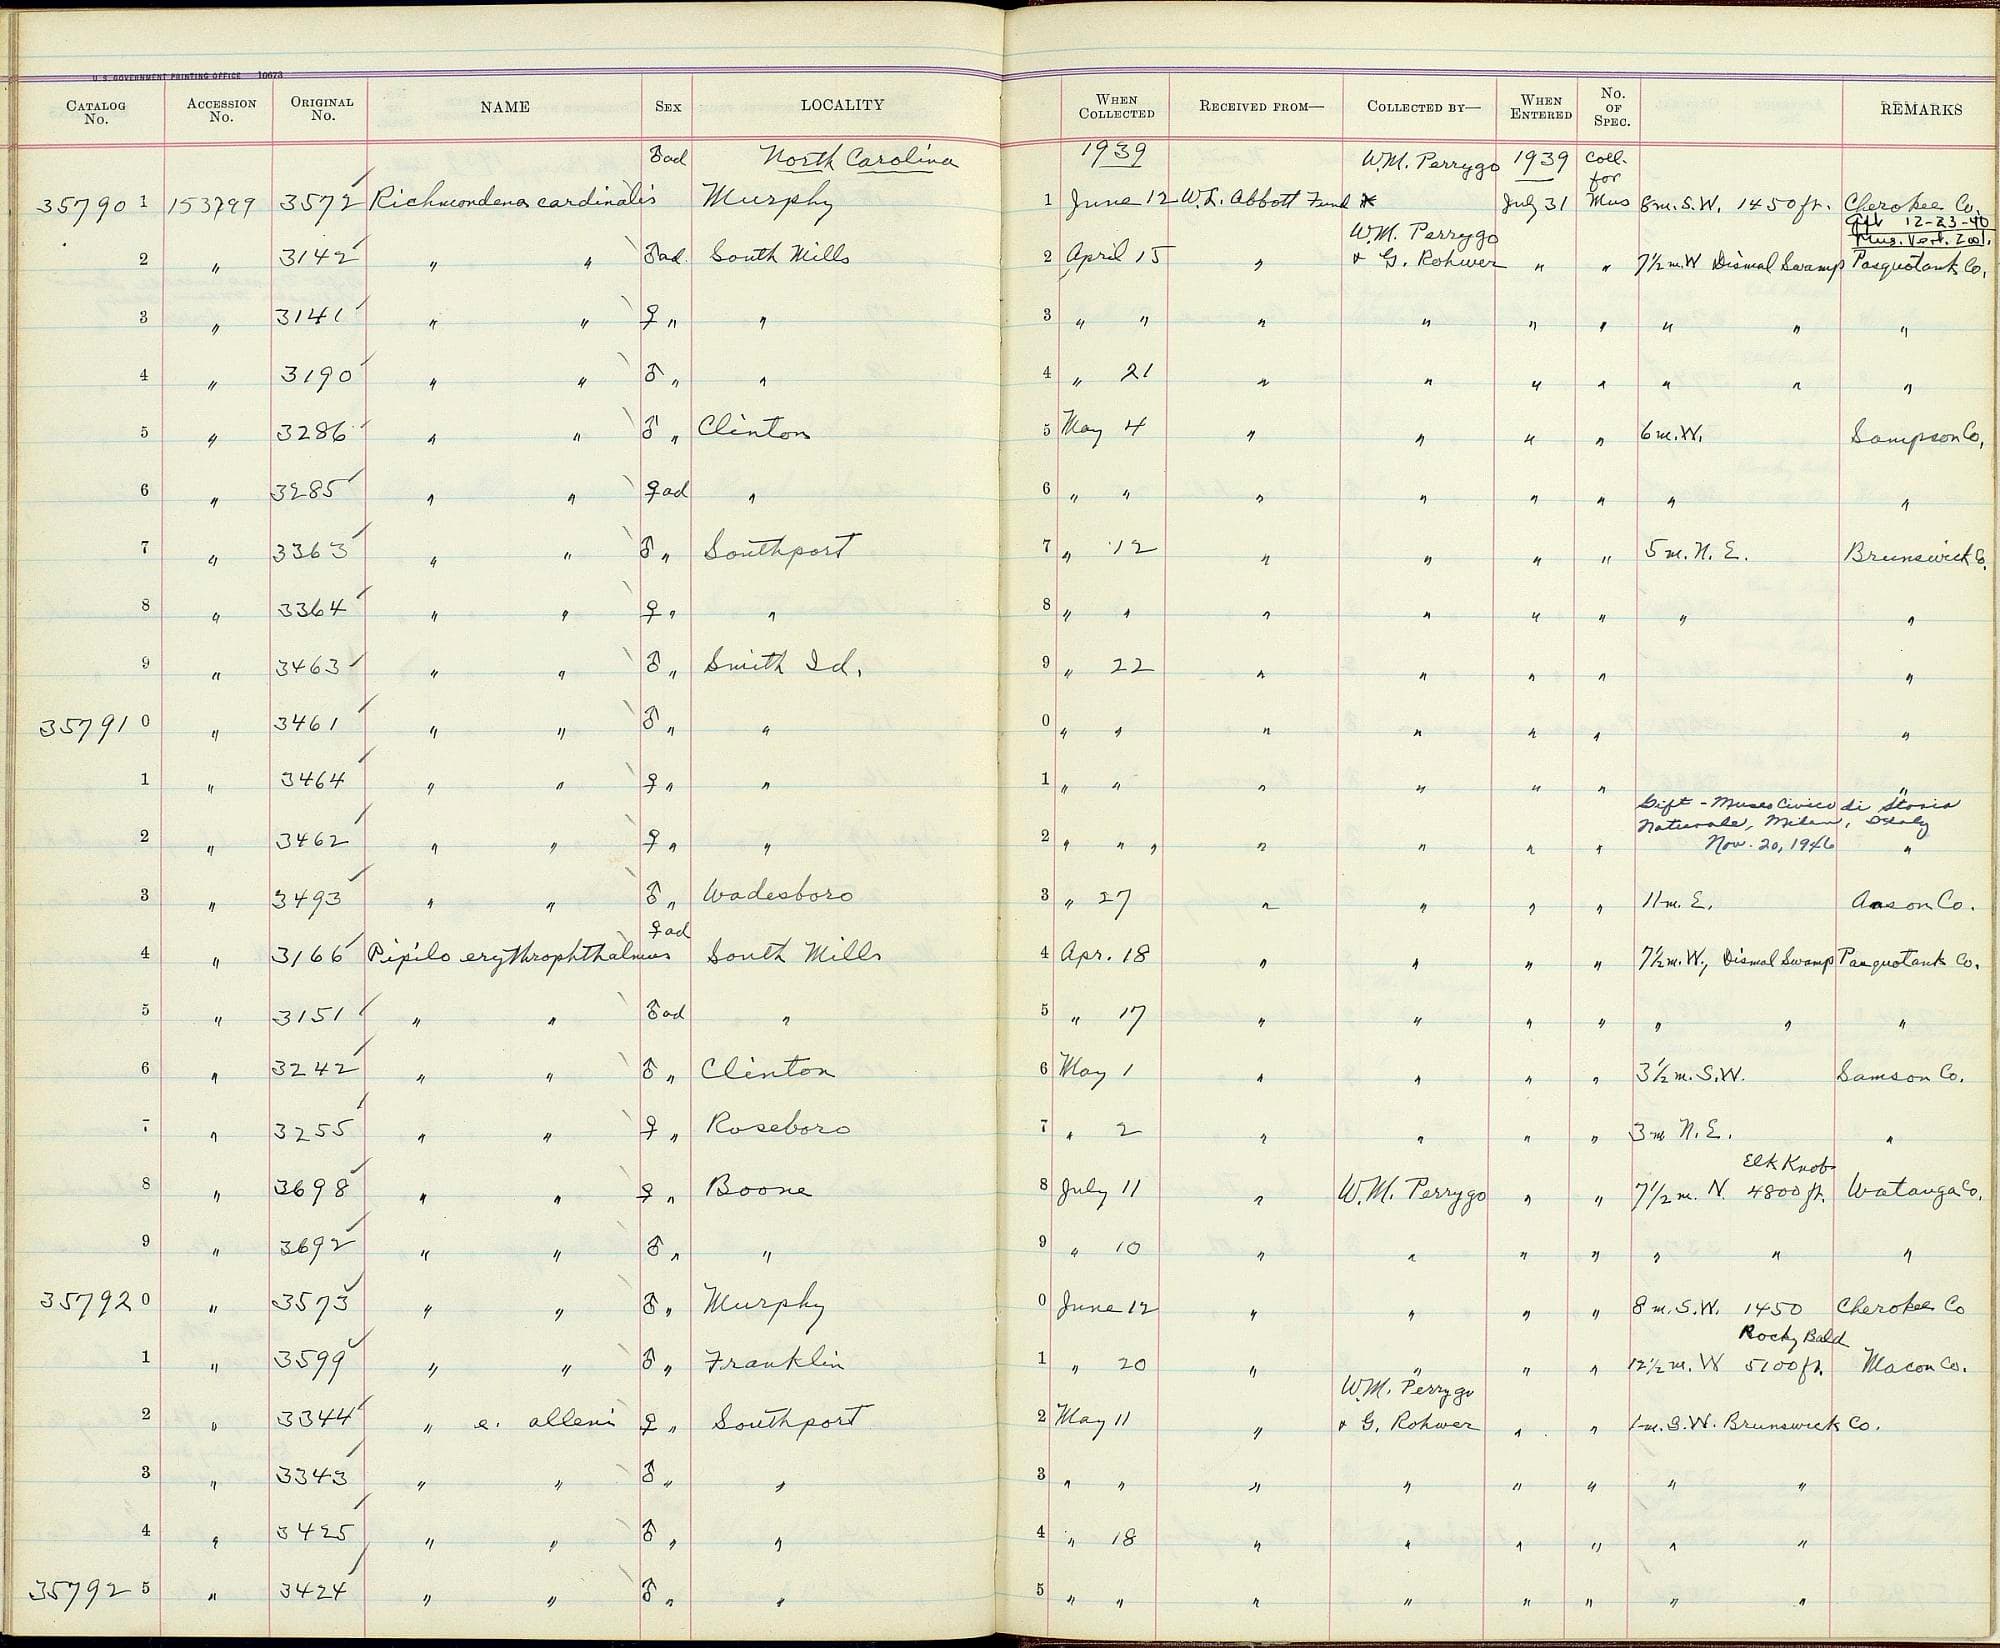 U.S. GOVERNMENT PRINTING OFFICE 10673
CATALOG No. ACCESSION No. ORIGINAL No. NAME SEX LOCALITY WHEN COLLECTED RECEIVED FROM— COLLECTED BY— WHEN ENTERED No. OF SPEC. REMARKS
♂ad North Carolina 1939 W.M. Perrygo 1939 Coll. for
35790 1 153799 3572 Richmondena cardinalis Murphy 1 June 12 W.L. Abbott Fund July 31 Mus 8 m. S.W. 1450 ft. Cherokee Co.
Gift 12-23-40
W.M. Perrygo Mus. Vert. Zool.
2 " 3142 " " ♂ad. South Mills 2 April 15 " & G. Rohwer " " 7½ m. W Dismal Swamp Pasquotank Co.
3 " 3141 " " ♀ " " 3 " " " " " " " " "
4 " 3190 " " ♂ " " 4 " 21 " " " " " " "
5 " 3286 " " ♂ " Clinton 5 May 4 " " " " 6 m. W. Sampson Co.
6 " 3285 " " ♀ad " 6 " " " " " " " "
7 " 3363 " " ♂ " Southport 7 " 12 " " " " 5 m. N. E. Brunswick Co.
8 " 3364 " " ♀ " " 8 " " " " " " " "
9 " 3463 " " ♂ " Smith Id. 9 " 22 " " " " "
35791 0 " 3461 " " ♂ " " 0 " " " " " " "
1 " 3464 " " ♀ " " 1 " " " " " " "
Gift - Museo Civico di Storia
Naturale, Milan, Italy
2 " 3462 " " ♀ " " 2 " " " " " " " Nov. 20, 1946 "
3 " 3493 " " ♂ " Wadesboro 3 " 27 " " " " 11 m. E. Anson Co.
♀ad
4 " 3166 Pipilo erythrophthalmus South Mills 4 Apr. 18 " " " " 7½ m. W., Dismal Swamp Pasquotank Co.
5 " 3151 " " ♂ad " 5 " 17 " " " " " " "
6 " 3242 " " ♂ " Clinton 6 May 1 " " " " 3½ m. S.W. Samson Co.
7 " 3255 " " ♀ " Roseboro 7 " 2 " " " " 3 m N. E. "
Elk Knob
8 " 3698 " " ♀ " Boone 8 July 11 " W.M. Perrygo " " 7½ m. N. 4800 ft. Watauga Co.
9 " 3692 " " ♂ " " 9 " 10 " " " " " " "
35792 0 " 3573 " " ♂ " Murphy 0 June 12 " " " " 8 m. S.W. 1450 Cherokee Co
Rocky Bald
1 " 3599 " " ♂ " Franklin 1 " 20 " " " " 12½ m. W 5100 ft. Macon Co.
W.M. Perrygo
2 " 3344 " e. alleni ♀ " Southport 2 May 11 " & G. Rohwer " " 1 m. S.W. Brunswick Co.
3 " 3343 " " ♂ " " 3 " " " " " " " "
4 " 3425 " " ♂ " " 4 " 18 " " " " " "
35792 5 " 3424 " " ♂ " " 5 " " " " " " " "